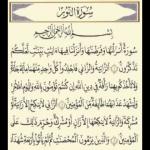 سُورَةُ النُّورِ
بِسْمِ اللَّهِ الرَّحْمَٰنِ الرَّحِيمِ
سُورَةٌ أَنزَلْنَاهَا وَفَرَضْنَاهَا وَأَنزَلْنَا فِيهَا آيَاتٍ بَيِّنَاتٍ لَّعَلَّكُمْ
تَذَكَّرُونَ ١ الزَّانِيَةُ وَالزَّانِي فَاجْلِدُوا كُلَّ وَاحِدٍ مِّنْهُمَا مِائَةَ
جَلْدَةٍ وَلَا تَأْخُذْكُم بِهِمَا رَأْفَةٌ فِي دِينِ اللَّهِ إِن كُنتُمْ تُؤْمِنُونَ
بِاللَّهِ وَالْيَوْمِ الْآخِرِ وَلْيَشْهَدْ عَذَابَهُمَا طَائِفَةٌ مِّنَ الْمُؤْمِنِينَ ٢
الزَّانِي لَا يَنكِحُ إِلَّا زَانِيَةً أَوْ مُشْرِكَةً وَالزَّانِيَةُ لَا يَنكِحُهَا
إِلَّا زَانٍ أَوْ مُشْرِكٌ وَحُرِّمَ ذَٰلِكَ عَلَى الْمُؤْمِنِينَ ٣
وَالَّذِينَ يَرْمُونَ الْمُحْصَنَاتِ ثُمَّ لَمْ يَأْتُوا بِأَرْبَعَةِ شُهَدَاءَ